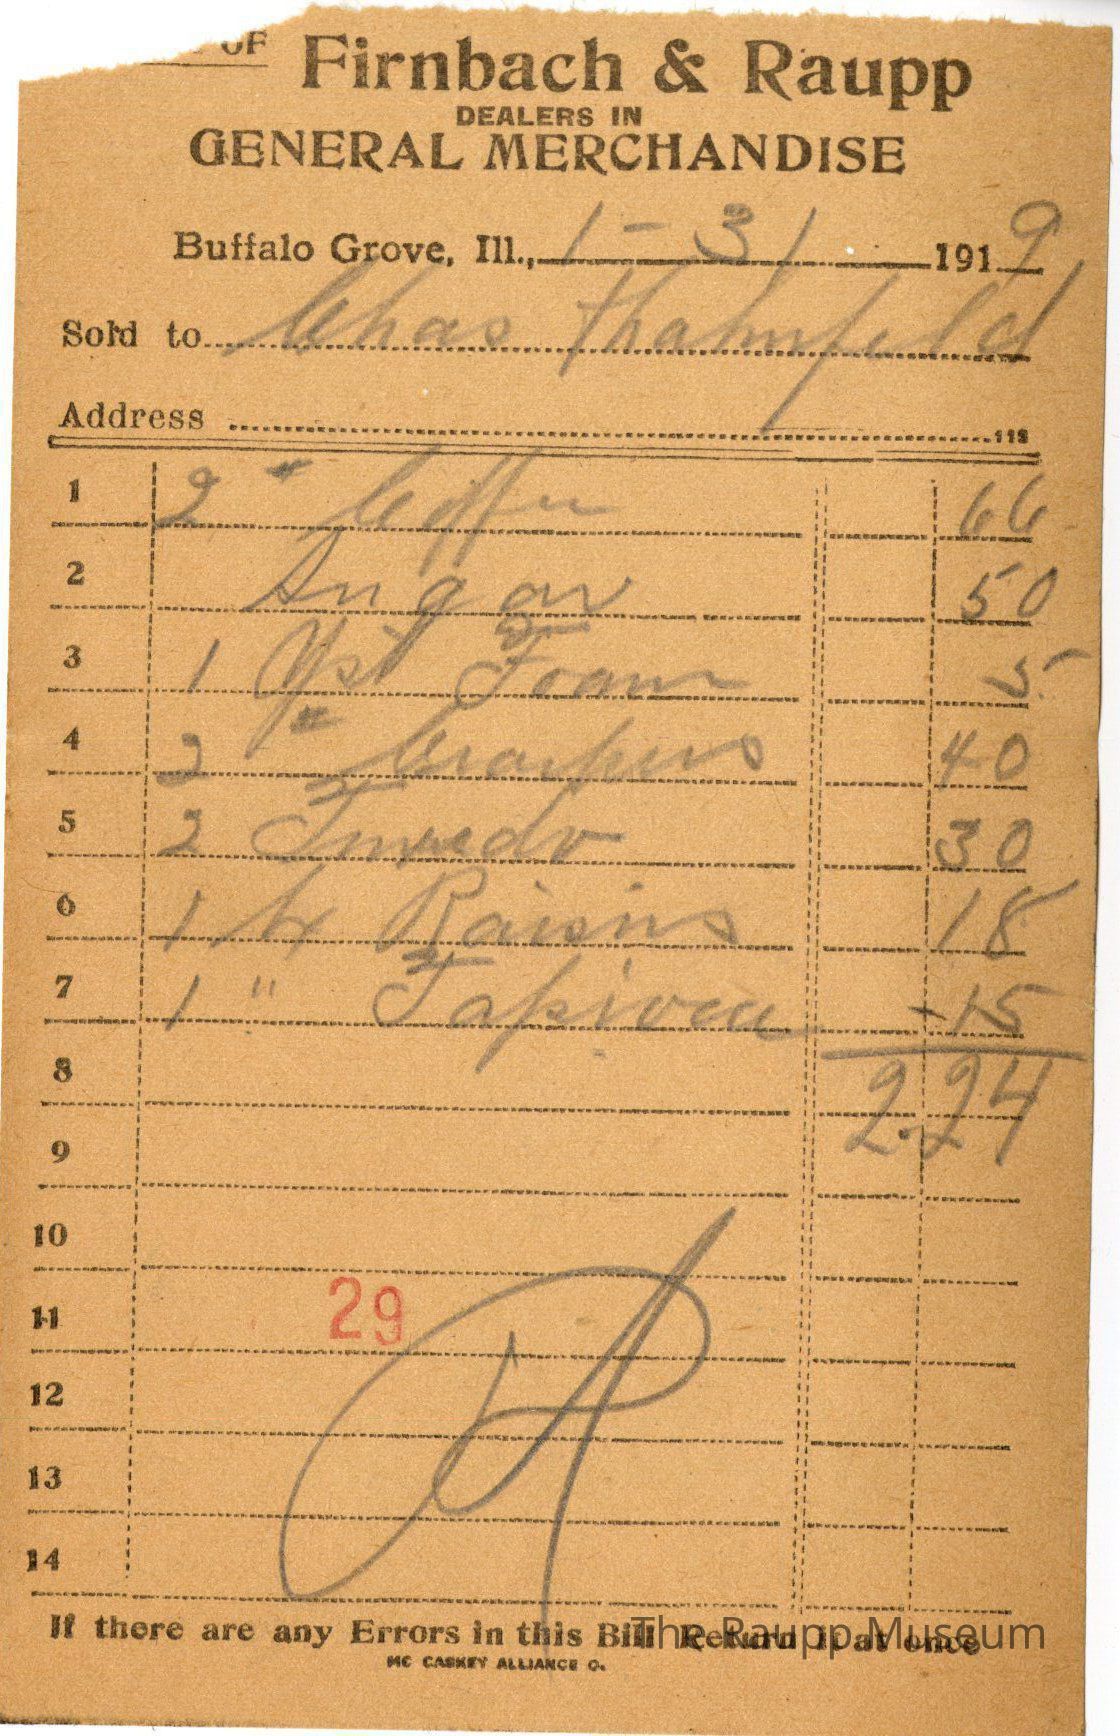 OF
Firnbach & Raupp
DEALERS IN
GENERAL MERCHANDISE
Buffalo Grove, Ill., 1-31 1919
Sold to Chas Thahnfeld
Address
118
1 2 # Coffee 66
2 Sugar 50
3 1 Yst Foam 5
4 2 # 40
5 2 Tuxedo 30
6 1 lb Raisins 18
7 1 " Tapioca 15
8 2.24
9
10
11 29
12
13
14
If there are any Errors in this Bill Return it at once
The Raupp Museum
MC CASKEY ALLIANCE O.